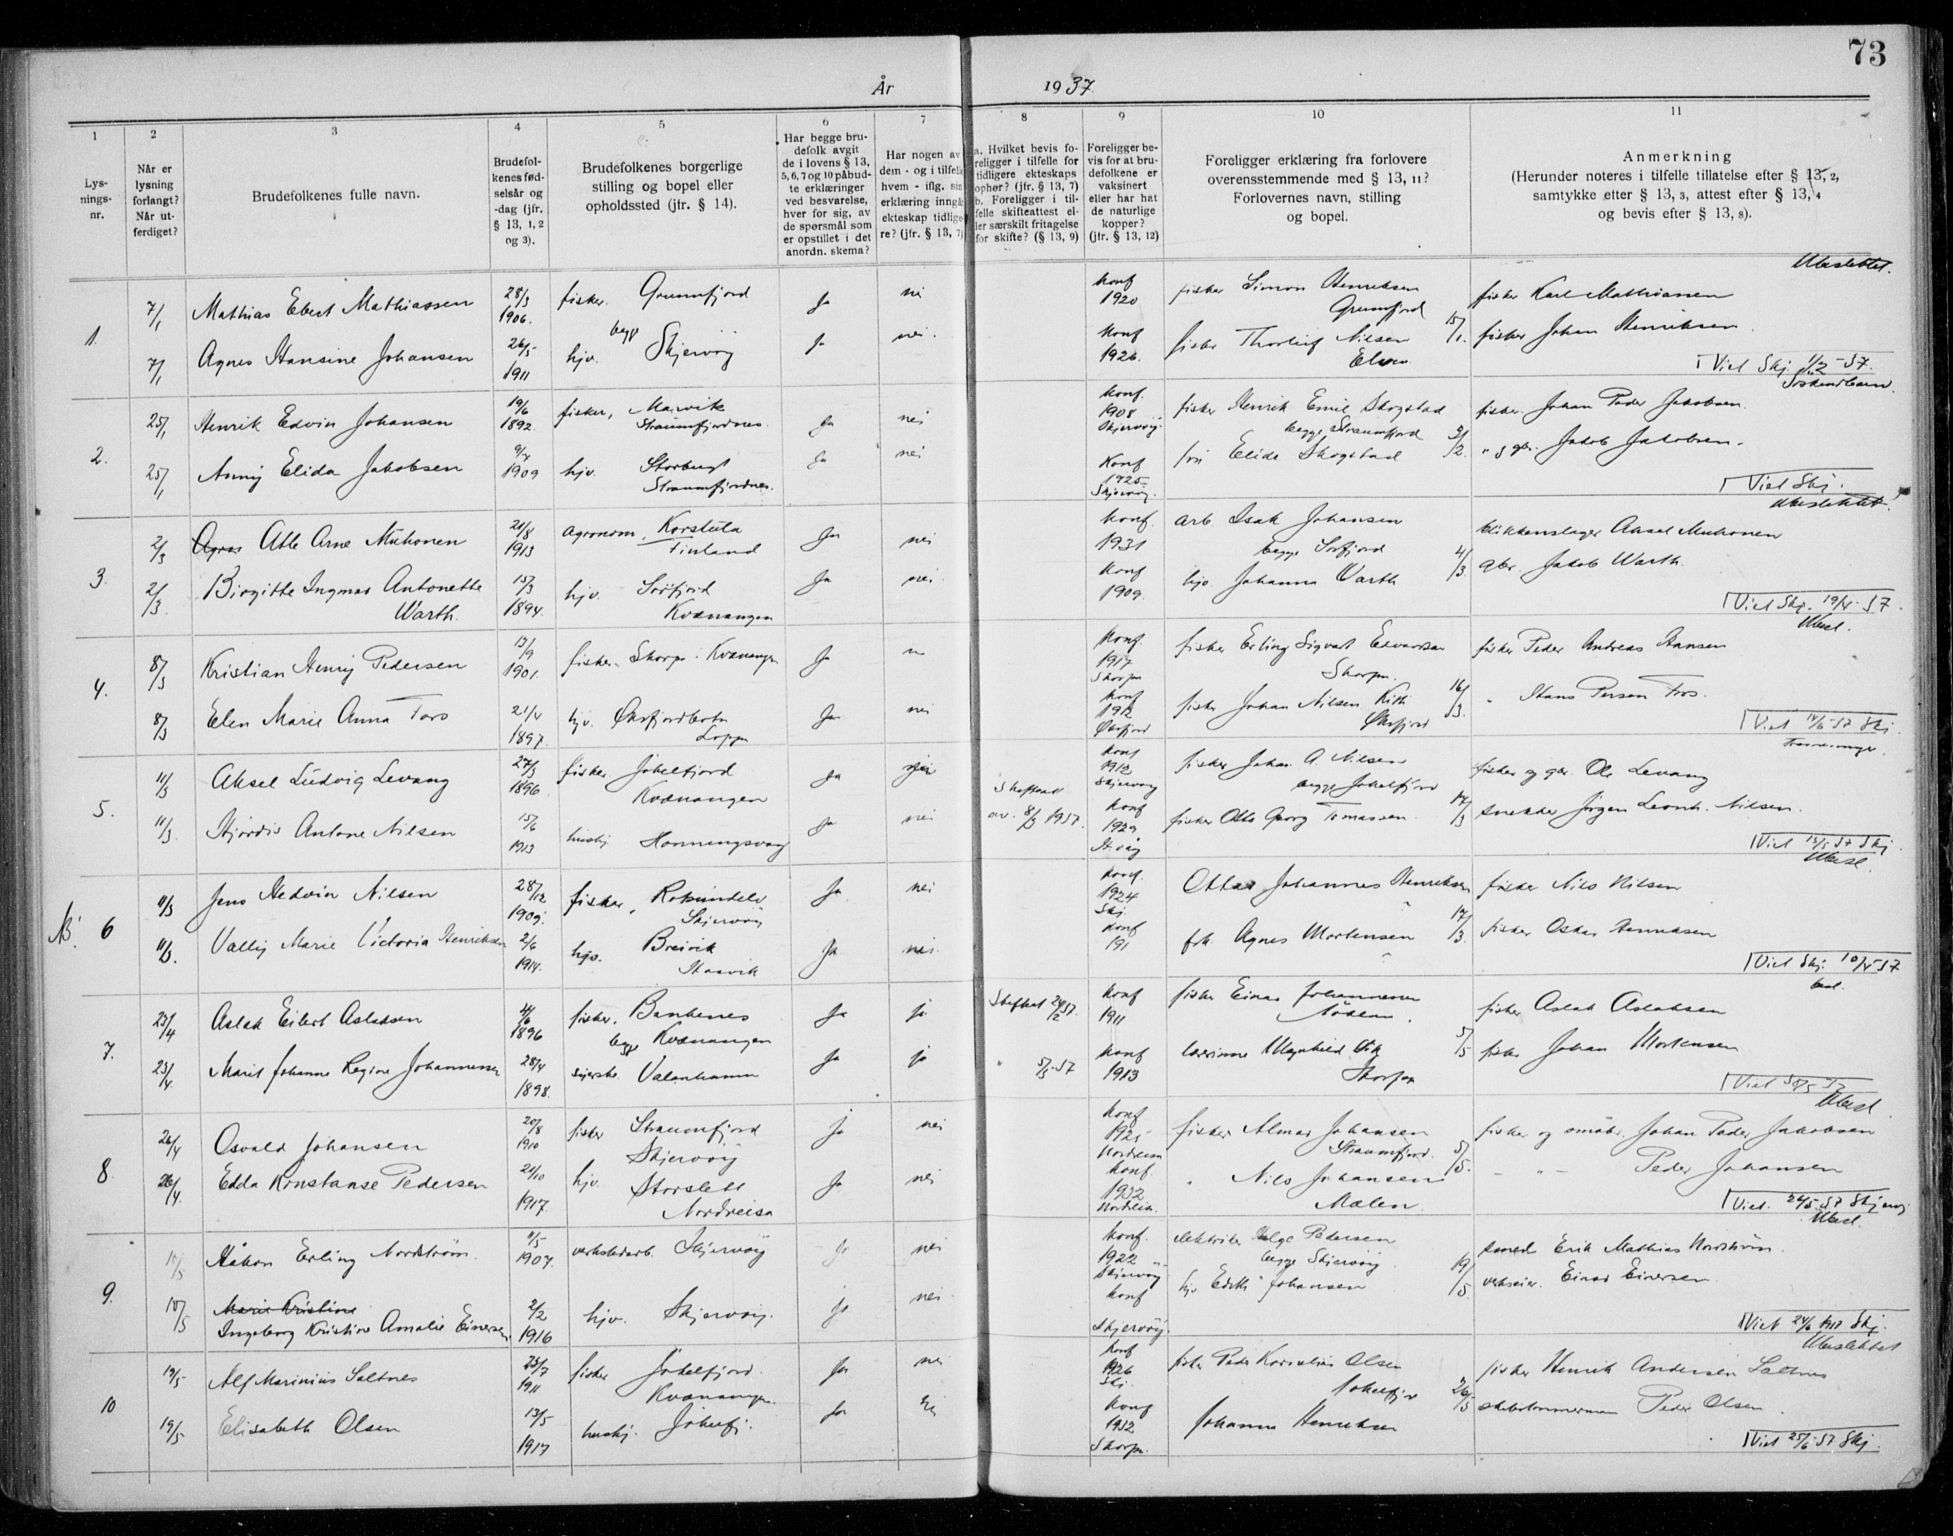 73
År 1937.
1 2 3 4 5 6 7 8 9 10 11
Lysnings-nr.
Når er lysning forlangt? Når utferdiget?
Brudefolkenes fulle navn.
Brudefolkenes fødselsår og -dag (jfr. § 13, 1, 2 og 3).
Brudefolkenes borgerlige stilling og bopel eller opholdssted (jfr. § 14).
Har begge brudefolk avgit de i lovens § 13, 5, 6, 7 og 10 påbudte erklæringer ved besvarelse, hver for sig, av de spørsmål som er opstillet i det anordn. skema?
Har nogen av dem - og i tilfelle hvem - iflg. sin erklæring inngå ekteskap tidligere? (jfr. § 13, 7)
a. Hvilket bevis foreligger i tilfelle for tidligere ekteskaps ophør? (jfr. § 13, 7) b. Foreligger i tilfelle skifteattest eller særskilt fritagelse for skifte? (§ 13, 9)
Foreligger bevis for at brudefolkene er vaksinert eller har hat de naturlige kopper? (jfr. § 13, 12)
Foreligger erklæring fra forlovere overensstemmende med § 13, 11? Forlovernes navn, stilling og bopel.
Anmerkning (Herunder noteres i tilfelle tillatelse efter § 13, 2, samtykke efter § 13, 3, attest efter § 13, 4 og bevis efter § 13, 8).
Ubeslektet.
1. 7/1 Mathias Ebert Mathiassen 28/3 1906. fisker. Grunnfjord ja nei konf 1920 fisker Simon Henriksen Grunnfjord fisker Karl Mathiassen
7/1 Agnes Hansine Johansen 26/5 1911 hjv. begge Skjervøy ja nei. konf 1926. fisker Thorleif Nilsen 15/1. fisker Johan Henriksen.
Viet Skj. 1/2-37.
Søskendbarn.
2. 25/1 Henrik Edvin Johansen 19/6 1892. fisker, Maivik Straumfjordnes. ja nei konf. 1908 Skjervøy fisker Henrik Emil Skogstad begge Straumfjord fisker. Johan Peder Jakobsen.
25/1 Anny Elida Jakobsen 1909 hjv. Storbugt Straumfjordnes. ja nei Konf 1925 Skjervøy. fru Elida Skogstad 3/2. " g gbr. Jakob Jakobsen.
Viet Skj.
Ubeslektet.
3. 2/3 Atle Arne Muhonen 21/8 1913 agronom, Finland ja nei konf. 1931 arb Isak Johansen begge Sørfjord blikkenslager Aksel Muhonen
2/3. Birgitte Ingmar Antonette Warth. 15/3 1894. hjv. Sørfjord Kvænangen ja nei. konf 1909. hjv. Johanna Warth 4/3 gbr. Jakob Warth.
Viet Skj. 19/4-37.
Ubesl.
4. 8/3 Kristian Henry Pedersen 13/9 1901. fisker. Skorpa i Kvænangen ja konf. 1917 Skorpa fisker Erling Sigvat Edvardsen Skorpa. fisker Peder Andreas Hansen
8/3 Elen Marie Anna Fors 21/4 1897. hjv. Øksfjordbotn Loppa ja nei konf 1912 Øksfjord fisker Johan Nilsen Øksfjord 16/3. " Hans Persen Fors.
Viet 14/6-37 Skj
5. 11/3 Aksel Ludvig Levang 27/3 1896 fisker Jøkelfjord Kvænangen ja konf 1912 Skjervøy fisker Johan A Nilsen begge Jøkelfjord fisker og gbr. Ole Levang
11/3. Hjørdis Antone Nilsen 15/6 1913 hushj. Honningsvaag ja nei 8/3 1937. konf 1929 fisker Otto Georg Tomassen. 17/3 snekker Jørgen Leonh. Nilsen.
Viet Skj.
Ubesl.
6 11/3 Jens Hedvin Nilsen 28/12 1909. fisker, Skjervøy ja. nei konf. 1924 Skj. Ottar Johannes Henriksen fisker Nils Nilsen
11/3. Vally Marie Victoria Henriksen 2/6 1914. hjv. Breivik Hasvik ja nei. konf 191 frk. Agnes Mortensen 17/3. fisker Oskar Henriksen
Viet Skj. 10/4-37
7. 23/4 Aslak Eilert Aslaksen 1896 fisker. Bankenes begge Kvænangen ja ja konf 1911 fisker Einar Johannessen fisker Aslak Aslaksen
23/4. Marit Johanne Regine Johannessen 28/4 1898. syerske. Valanhamn ja ja " 5/3-37 konf 1913 lærerinne Magnhild Skorpa 5/5 fisker Johan Mortensen
Viet
Ubesl.
8 26/4 Osvald Johansen 20/8 1910 fisker Straumfjord Skjervøy ja nei konf 1925 Nordreisa fisker Almar Johansen Straumfjord. fisker og småbr. Johan Peder Jakobsen
26/4. Edda Konstanse Pedersen 21/10 1917. hjv. Storslett Nordreisa ja nei konf. 1932 Nordreisa. " Nils Johansen Mælen. 5/5. - " - Peder Johansen
Viet. 24/5-37 Skjervøy
Ubesl.
9. 10/5 Håkon Erling Nordstrøm. 11/5 1907. verkstedarb. Skjervøy ja nei konf. 1922 Skjervøy elektriker Helge Pedersen begge Skjervøy. smed Erik Mathias Nordstrøm.
10/5 Marie Kristine Ingeborg Kristine Amalie Einersen 2/2 1916 hjv. Skjervøy. ja nei. konf Skjervøy. hjv Edith Johansen 19/5. verkseier. Einar Einersen
Viet 24/6 Skj.
Ubeslektet
10 19/5 Alf Marinius Saltnes 23/7 1911 fisker Jøkelfjord. Kvænangen. ja nei konf 1926 Skj. fisker Peder Kornelius Olsen Jøkelfjor fisker Henrik Andersen Saltnes
19/5. Elisabeth Olsen 13/5 1917 hushj. Jøkelfj. ja nei konf 1932 Skorpa. Johanna Henriksen 26/5 Peder Olsen.
Viet 25/6-37 Skj.